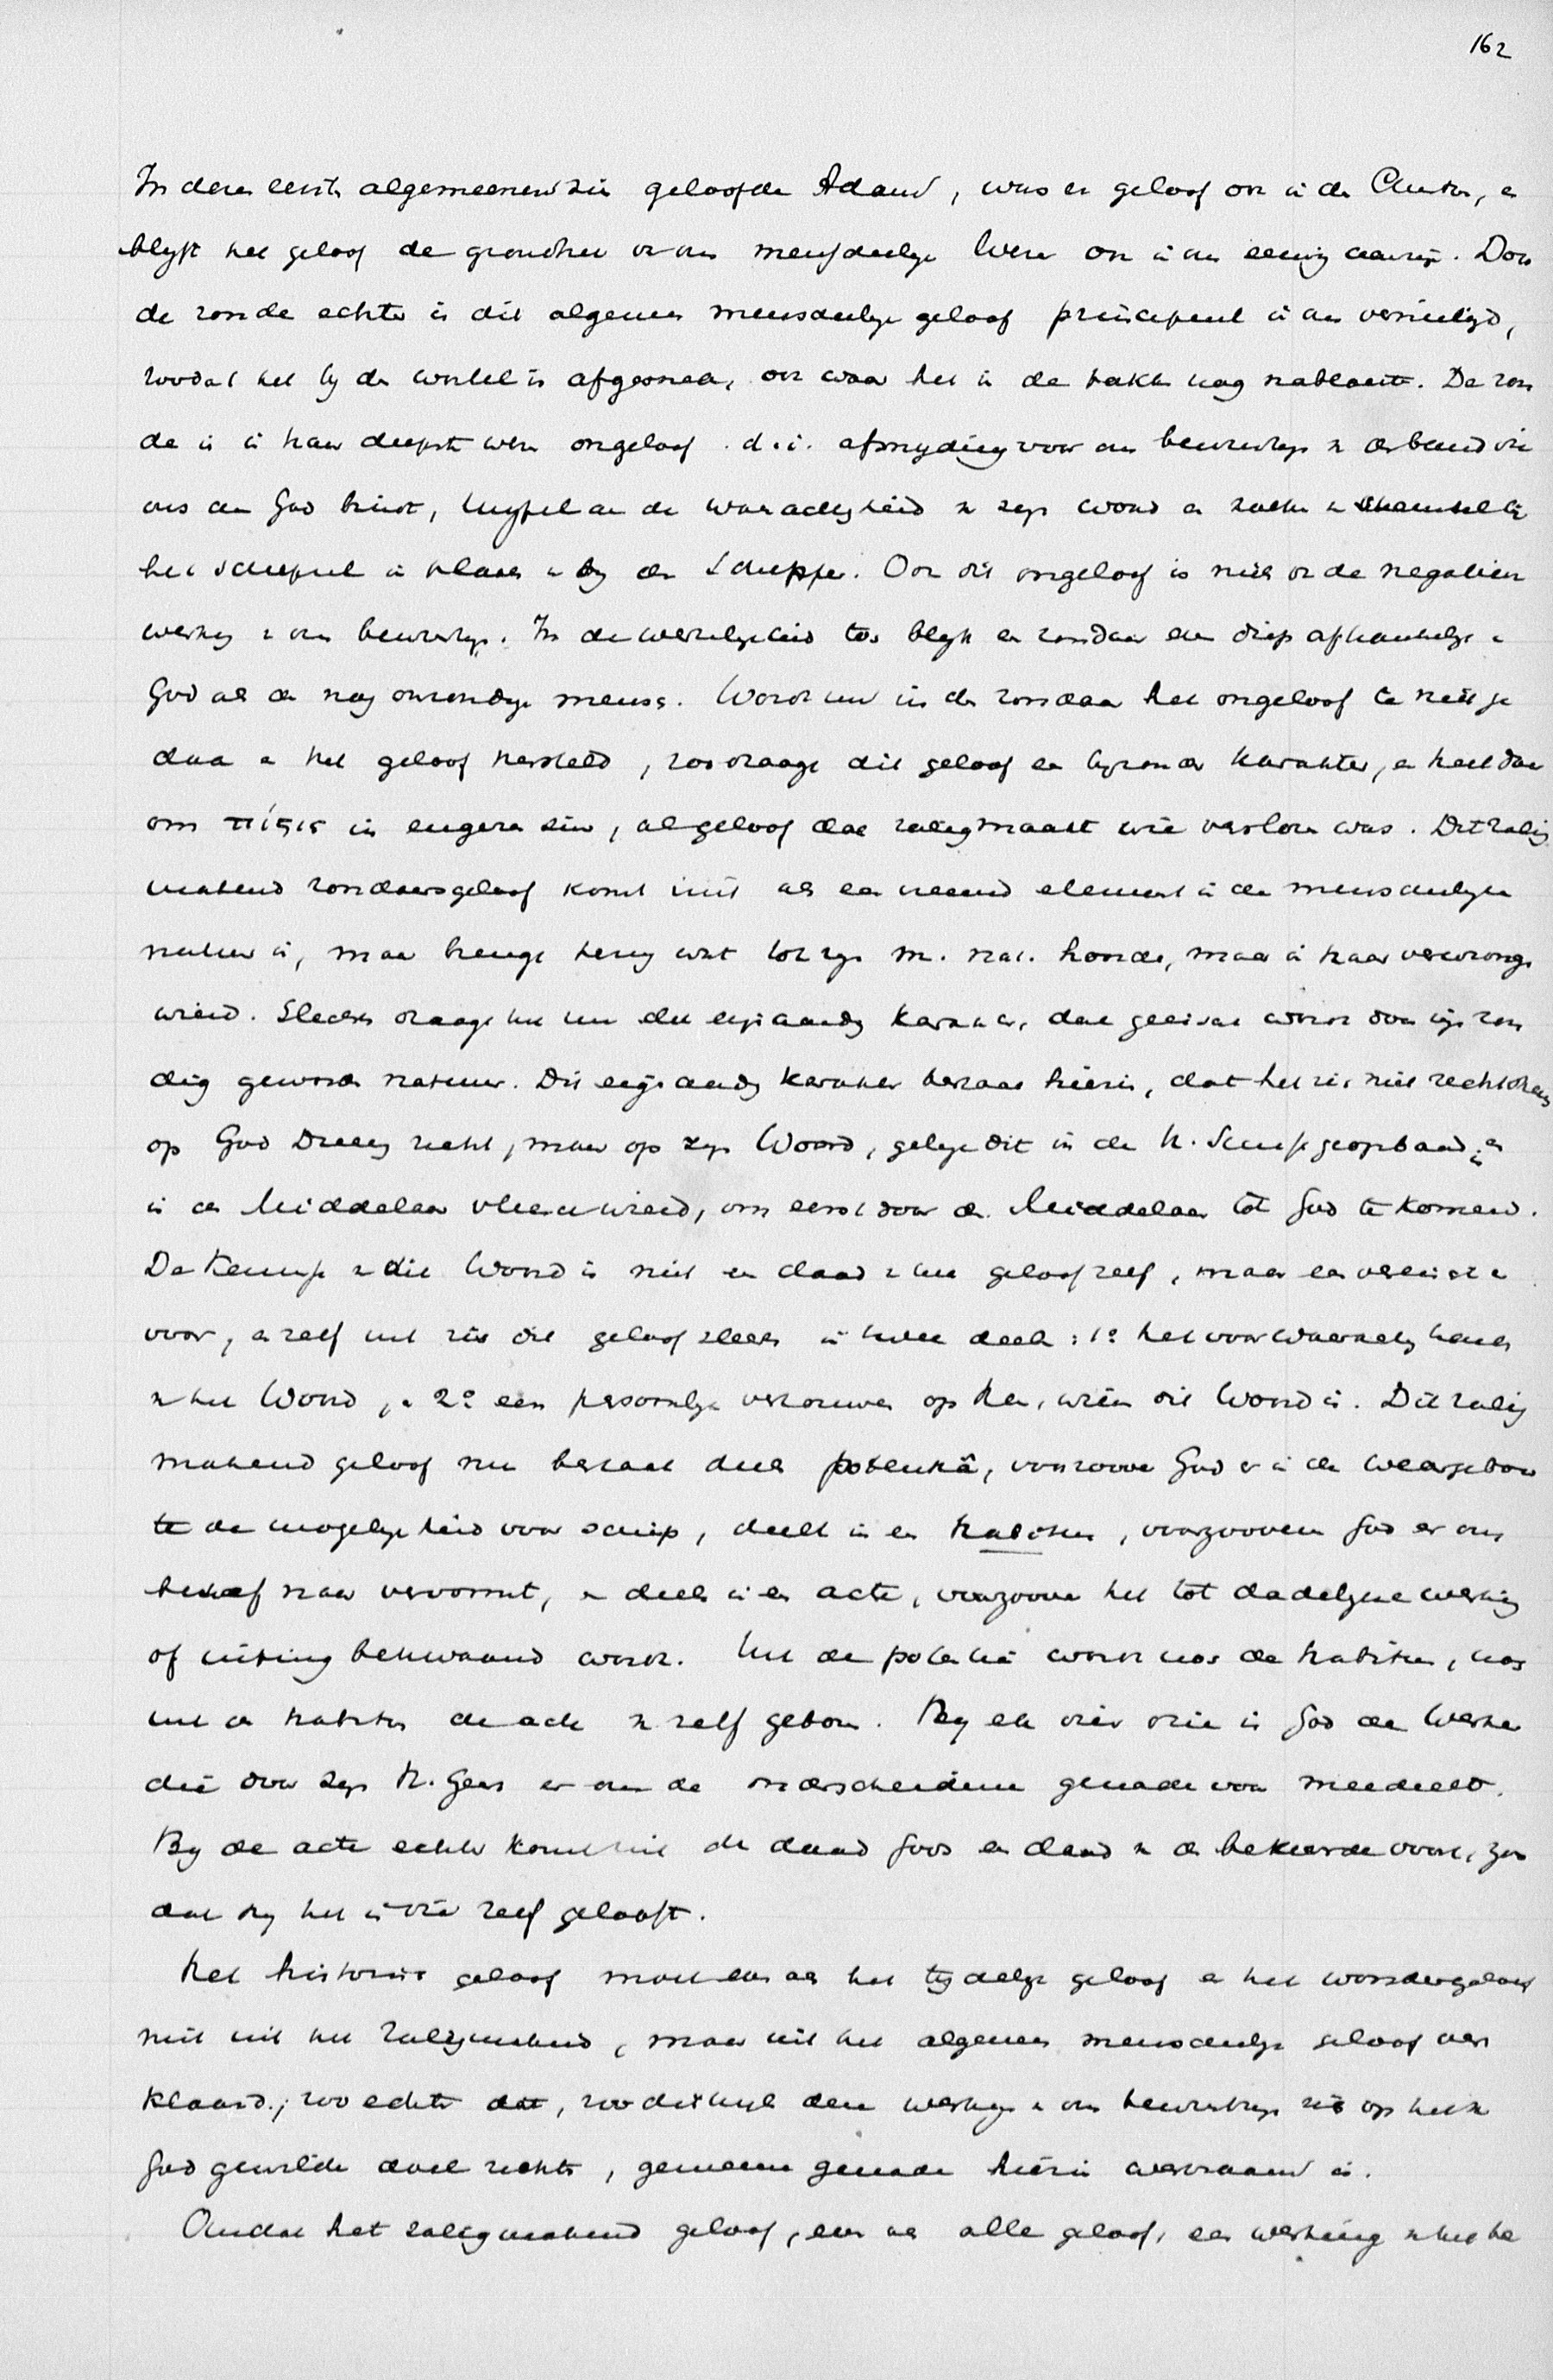 162
In deze eerste algemeenen zin geloofde Adam, was er geloof ook in den Christus, en
blijft het geloof de grondtrek van ons menschelijk wezen ook in den eeuwig. Door
de zonde echter is dit algemeen menschelijk geloof principieel in ons vernietigd,
zoodat het bij den wortel is afgesneden, ook waar het in de takken nog nabloeit. De zon
de is in haar diepste wezen ongeloof d.i. afsnijding voor ons bewustzijn van den band die
ons aan God bindt, twijfel aan de waarachtigheid van zijn woord en zoeken van
het schepsel in plaats van bij den Schepper. Ook dit ongeloof is niets dan de negatieve
werking van ons bewustzijn. In de werkelijkheid toch blijft de zondaar even diep afhankelijk van
God als de nog onzondige mensch. Wordt nu in den zondaar het ongeloof te niet ge
daan en het geloof hersteld, zoo draagt dit geloof een bijzonder karakter, en heet daar
om πίστις in engeren zin, als geloof dat zalig maakt wie verloren was. Dit zalig
makend zondaarsgeloof komt niet als een vreemd element in de menschelijke
natuur in, maar brengt terug wat tot zijn m. nat. hoorde, maar in haar verwrongen
wierd. Slechts draagt het nu dit eigenaardig karakter, dat geeischt wordt door zijn zon
dig geworden natuur. Dit eigenaardig karakter bestaat hierin, dat het zich niet rechtstreeks
op God Drieeenig richt, maar op zijn Woord, gelijk dit in de H. Schrift geopenbaard is en
in den Middelaar vleesch wierd, om eerst door den Middelaar tot God te komen.
De kennis van dit Woord is niet een daad van het geloof zelf, maar een vereischte er
voor, en zelf uit zich dit geloof steeds in twee deelen: 1º het voor waarachtig houden
van het Woord, en 2º een persoonlijk vertrouwen op Hem, wien dit Woord is. Dit zalig
makend geloof nu bestaat deels potentiâ, voorzoover God er in de wedergeboor
te de mogelijkheid voor schiep, deels in een habitus, voorzooveer God er ons
besef naar vervormt, en deels in een acte, voorzoover het tot dadelijke werking
of uiting bekwaamd wordt. Uit de potentia wordt nooit de habitus, noch
uit den habitus de acte van zelf geboren. Bij elk dezer drie is God de Werker
die door zijn H. Geest er ons de onderscheidene genade voor meedeelt.
Bij de acte echter komt uit de daad Gods een daad van den bekeerde voort, zoo
dat hij het is die zelf gelooft.
Het historisch geloof moet even als het tijdelijk geloof en het wondergeloof
niet uit het zaligmakend, maar uit het algemeen menschelijk geloof ver
klaard; zoo echter dat, zoo dikwijls deze werking van ons bewustzijn zich op het van
God gewilde doel richt, gemeene genade hierin werkzaam is.
Omdat het zaligmakend geloof, even als alle geloof, een werking van het be